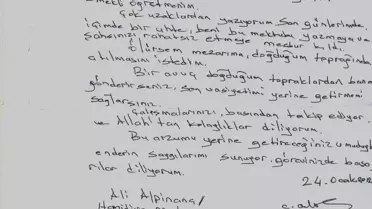 öğretmenim.
Çok uzaklardan yazıyorum. Son günlerimde
içimde bir ukte, beni bu mektubu yazmaya ve
rahatsız etmeye mecbur kıldı.
Ölürsem mezarıma, doğduğum toprağında
atılmasını istedim.
Bir avuç doğduğum topraklardan bana
gönderirseniz, son vasiyetimi yerine getirmemi
sağlarsınız.
Çalışmalarınızı, basından takip ediyor
ve Allah'tan kolaylıklar diliyorum.
Bu arzumu yerine getireceğinizi
saygılarımı sunuyor, görevinizde
diliyorum.
24. Ocak
Ali Alpınang/